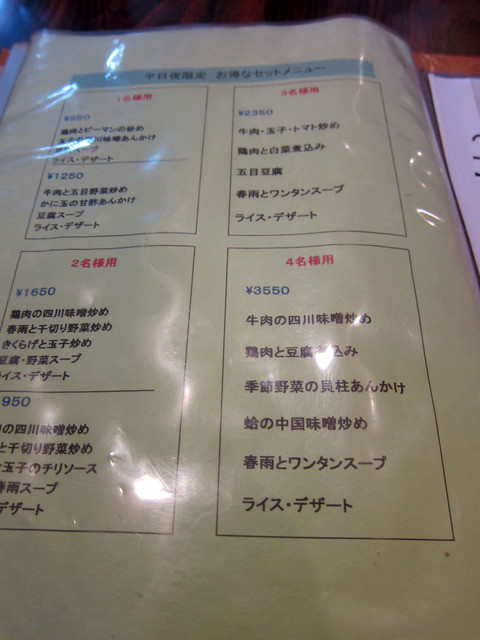 平日夜限定 お得なセットメニュー
1名様用
鶏肉とピーマンの炒め
玉子の四川味噌あんかけ
スープ
ライス・デザート
¥1250
牛肉と五目野菜炒め
かに玉の甘酢あんかけ
豆腐スープ
ライス・デザート
2名様用
¥1650
鶏肉の四川味噌炒め
春雨と千切り野菜炒め
きくらげと玉子炒め
豆腐・野菜スープ
ライス・デザート
950
の四川味噌炒め
と千切り野菜炒め
と玉子のチリソース
春雨スープ
デザート
3名様用
¥2350
牛肉・玉子・トマト炒め
鶏肉と白菜煮込み
五目豆腐
春雨とワンタンスープ
ライス・デザート
4名様用
¥3550
牛肉の四川味噌炒め
鶏肉と豆腐煮込み
季節野菜の貝柱あんかけ
蛤の中国味噌炒め
春雨とワンタンスープ
ライス・デザート